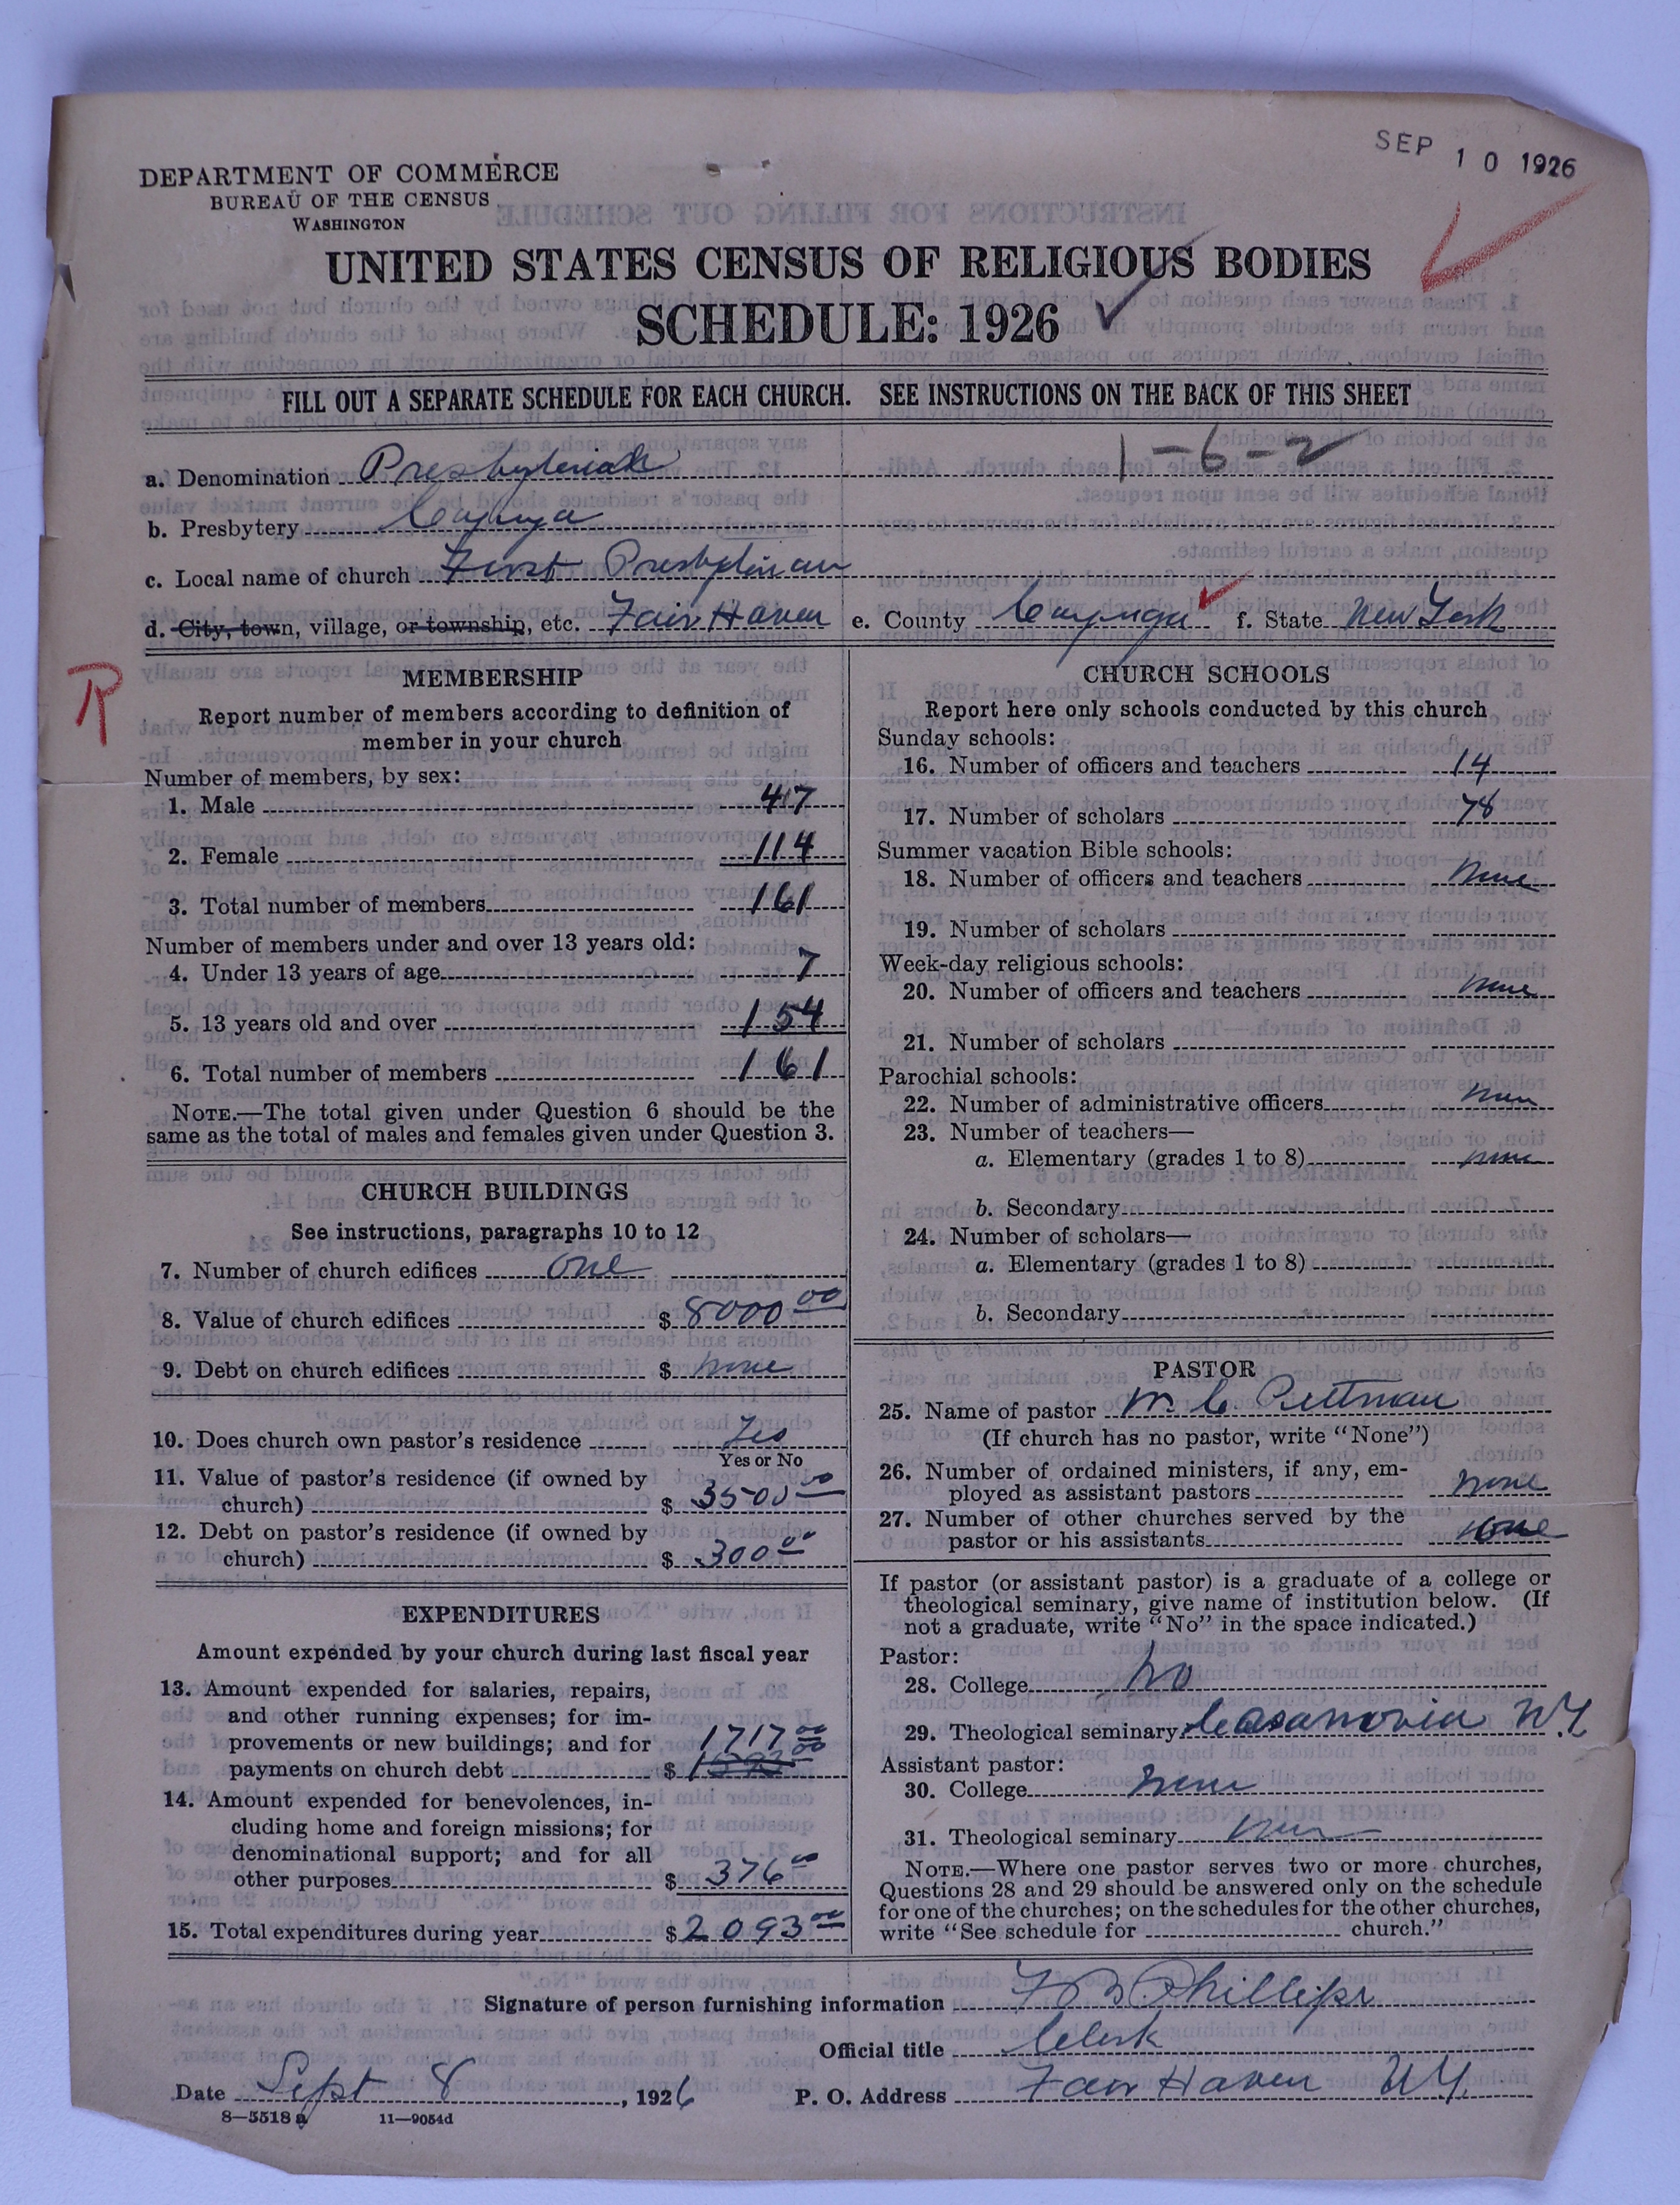 SEP 10 1926
DEPARTMENT OF COMMERCE
BUREAU OF THE CENSUS
WASHINGTON
UNITED STATES CENSUS OF RELIGIOUS BODIES
SCHEDULE: 1926
FILL OUT A SEPARATE SCHEDULE FOR EACH CHURCH. SEE INSTRUCTIONS ON THE BACK OF THIS SHEET
1-6-2
a. Denomination Presbyterian
b. Presbytery Cayuga
c. Local name of church First Presbyterian
d. City, town, village, or township, etc. Fair Haven e. County Cayuga f. State New York
R
MEMBERSHIP
Report number of members according to definition of
member in your church
Number of members, by sex:
1. Male 47
2. Female 114
3. Total number of members 161
Number of members under and over 13 years old:
4. Under 13 years of age 7
5. 13 years old and over 154
6. Total number of members 161
NOTE.—The total given under Question 6 should be the
same as the total of males and females given under Question 3.
CHURCH BUILDINGS
See instructions, paragraphs 10 to 12
7. Number of church edifices one
8. Value of church edifices $ 8000 00
9. Debt on church edifices $ none
10. Does church own pastor's residence Yes
Yes or No
11. Value of pastor's residence (if owned by
church) $ 3500 00
12. Debt on pastor's residence (if owned by
church) $ 300 00
EXPENDITURES
Amount expended by your church during last fiscal year
13. Amount expended for salaries, repairs,
and other running expenses; for im-
provements or new buildings; and for 1717 00
payments on church debt $
14. Amount expended for benevolences, in-
cluding home and foreign missions; for
denominational support; and for all
other purposes $ 376 00
15. Total expenditures during year $ 2093 00
CHURCH SCHOOLS
Report here only schools conducted by this church
Sunday schools:
16. Number of officers and teachers 14
17. Number of scholars 78
Summer vacation Bible schools:
18. Number of officers and teachers none
19. Number of scholars
Week-day religious schools:
20. Number of officers and teachers none
21. Number of scholars
Parochial schools:
22. Number of administrative officers none
23. Number of teachers—
a. Elementary (grades 1 to 8) none
b. Secondary
24. Number of scholars—
a. Elementary (grades 1 to 8)
b. Secondary
PASTOR
25. Name of pastor M. C. Pittman
(If church has no pastor, write "None")
26. Number of ordained ministers, if any, em-
ployed as assistant pastors none
27. Number of other churches served by the
pastor or his assistants none
If pastor (or assistant pastor) is a graduate of a college or
theological seminary, give name of institution below. (If
not a graduate, write "No" in the space indicated.)
Pastor:
28. College No
29. Theological seminary Casanovia NY
Assistant pastor:
30. College none
31. Theological seminary none
NOTE.—Where one pastor serves two or more churches,
Questions 28 and 29 should be answered only on the schedule
for one of the churches; on the schedules for the other churches,
write "See schedule for church."
Signature of person furnishing information F B Phillips
Official title Clerk
Date Sept 8, 1926 P. O. Address Fair Haven NY
8—5518 a 11—9054d